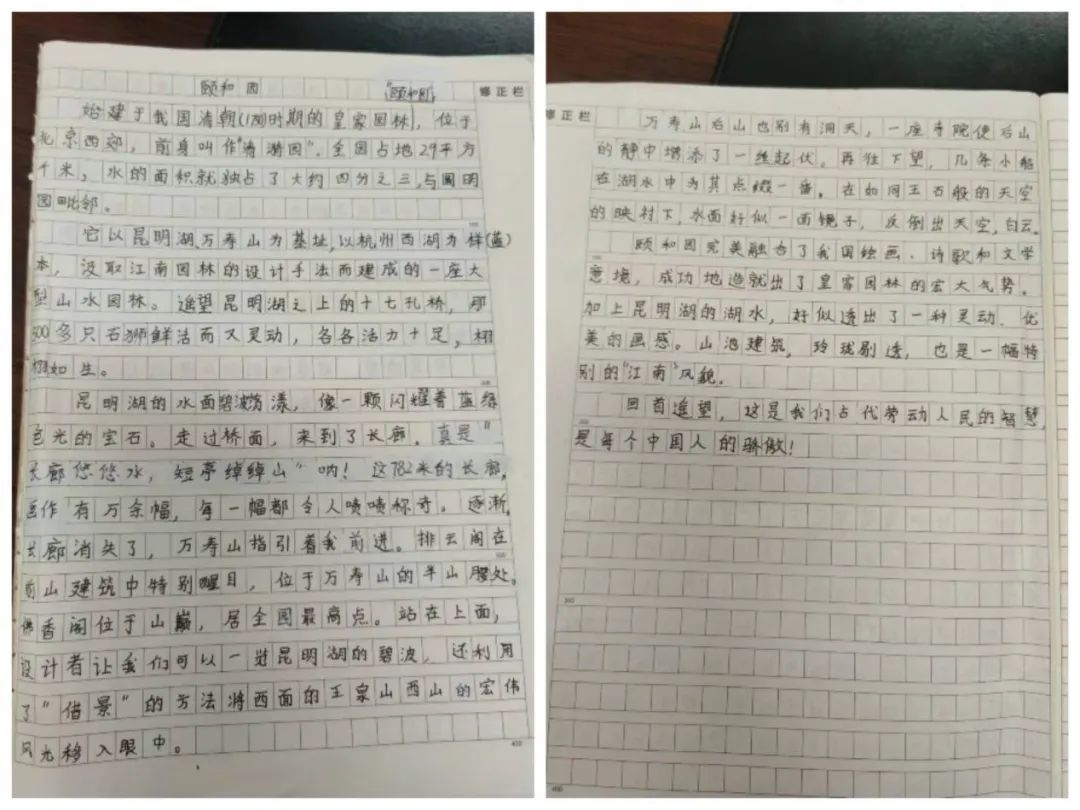 颐和园
"颐和园"
修正栏
始建于我国清朝(1750时期的皇家园林),位于
北京西郊,前身叫作"清漪园".全园占地2.9平方
千米,水的面积就独占了大约四分之三,与圆明
园毗邻。
它以昆明湖万寿山为基址,以杭州西湖为样(蓝)
本,汲取江南园林的设计手法而建成的一座大
型山水园林。遥望昆明湖之上的十七孔桥,那
500多只石狮鲜活而又灵动,各各活力十足,栩
栩如生。
昆明湖的水面碧波荡漾,像一颗闪耀着蓝绿
色光的宝石。走过桥面,来到了长廊。真是"
长廊悠悠水,短亭绰绰山"呐!这782米的长廊,
画作有万余幅,每一幅都令人啧啧称奇。逐渐,
长廊消失了,万寿山指引着我前进。排云阁在
前山建筑中特别醒目,位于万寿山的半山腰处。
佛香阁位于山巅,居全园最高点。站在上面,
设计者让我们可以一睹昆明湖的碧波,还利用
了"借景"的方法将西面的玉泉山西山的宏伟
风光移入眼中。
400
修正栏
万寿山后山也别有洞天,一座寺院使后山
的静中增添了一丝起伏。再往下望,几条小船
在湖水中为其点缀一番。在如同玉石般的天空
的映衬下,水面好似一面镜子,反倒出天空,白云。
颐和园完美融合了我国绘画、诗歌和文学
意境,成功地造就出了皇家园林的宏大气势。
加上昆明湖的湖水,好似透出了一种灵动、优
美的画感。山池建筑,玲珑剔透,也是一幅特
别的"江南"风貌.
回首遥望,这是我们古代劳动人民的智慧,
是每个中国人的骄傲!
300
400